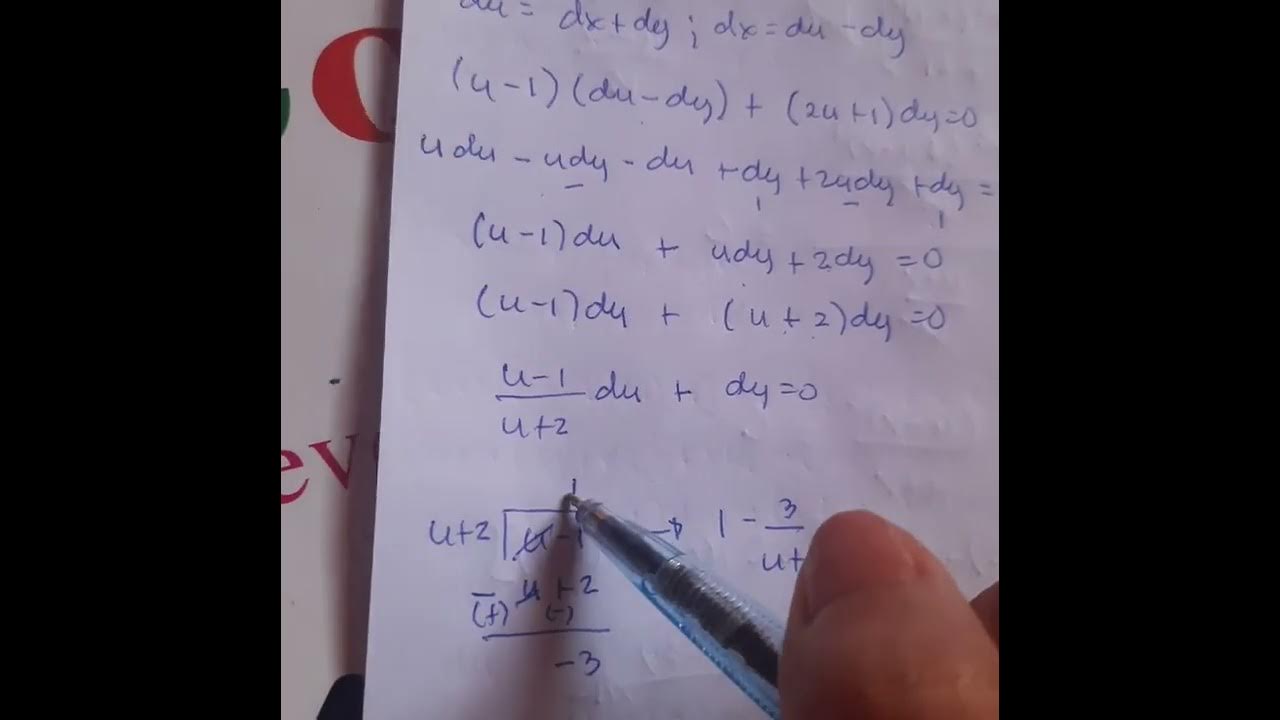 du = dx + dy ; dx = du - dy
(u - 1) (du - dy) + (2u + 1) dy = 0
u du - u dy - du + dy + 2u dy + dy =
(u - 1) du + u dy + 2 dy = 0
(u - 1) dy + (u + 2) dy = 0
u - 1
du + dy = 0
u + 2
1
u + 2 u - 1 → 1 - 3
u +
- u + 2
(+) (-)
- 3
ev